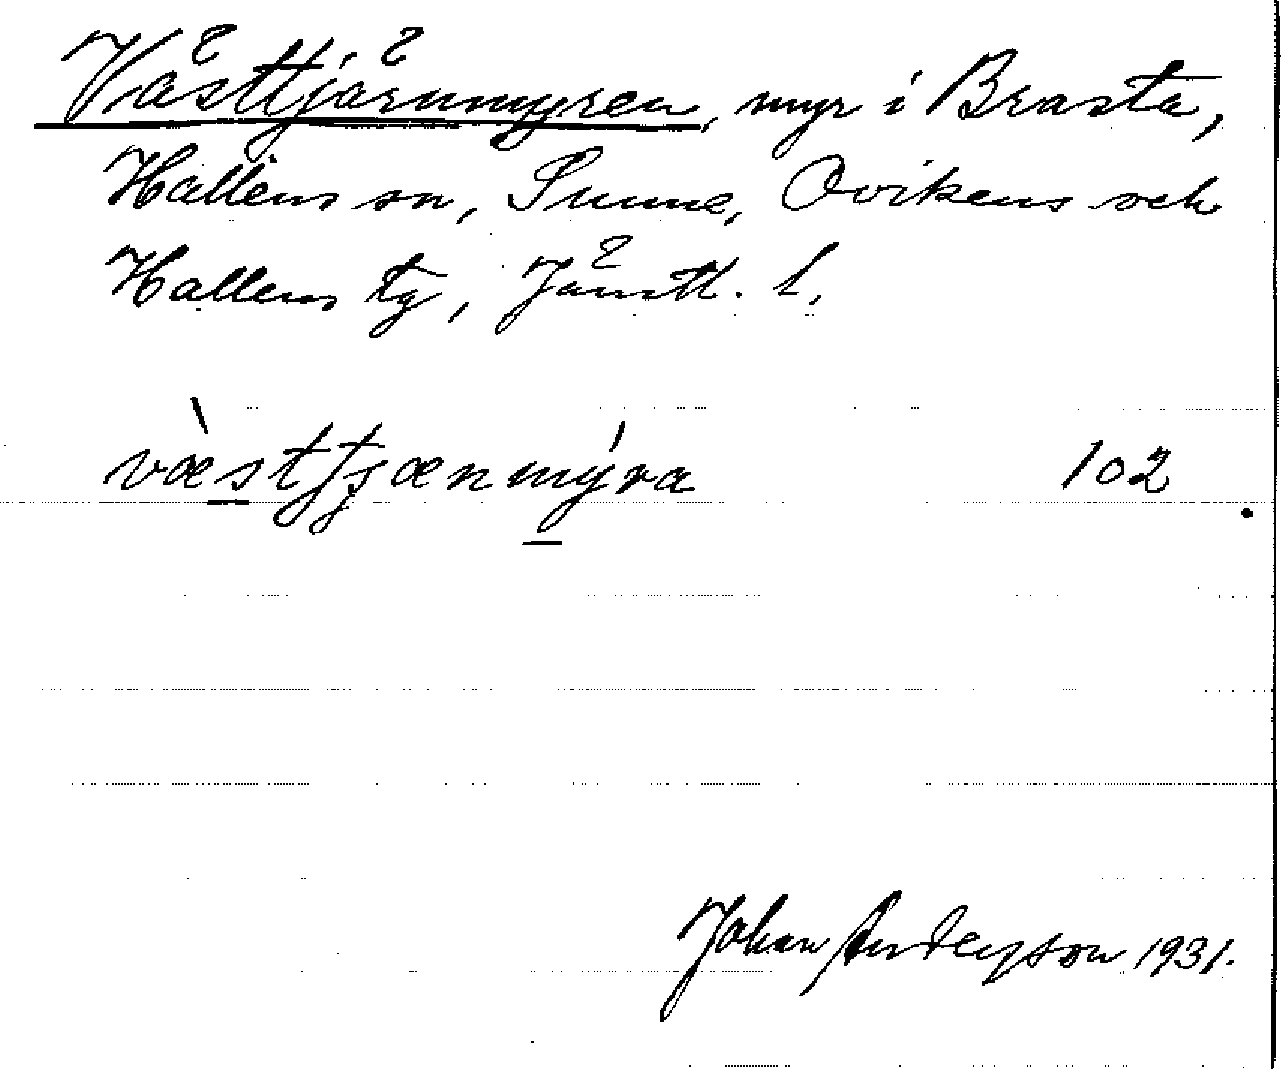 Västtjärnmyren, myr i Brasta,
Hallens sn, Sunne, Ovikens och
Hallens tg, Jämtl. l.
væstʃʂænmýra 102
Johan Andersson 1931.